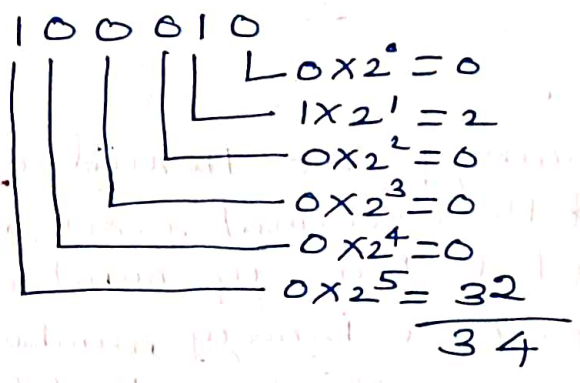 1 0 0 0 1 0
0 × 2⁰ = 0
1 × 2¹ = 2
0 × 2² = 0
0 × 2³ = 0
0 × 2⁴ = 0
0 × 2⁵ = 32
34